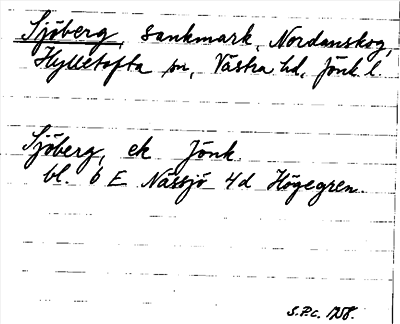 Sjöberg, sankmark, Nordanskog,
Hylletofta sn, Västra hd, Jönk. l.
Sjöberg, ek Jönk.
bl. 6 E Nässjö 4d Högegren.
S.P.C. 1258.